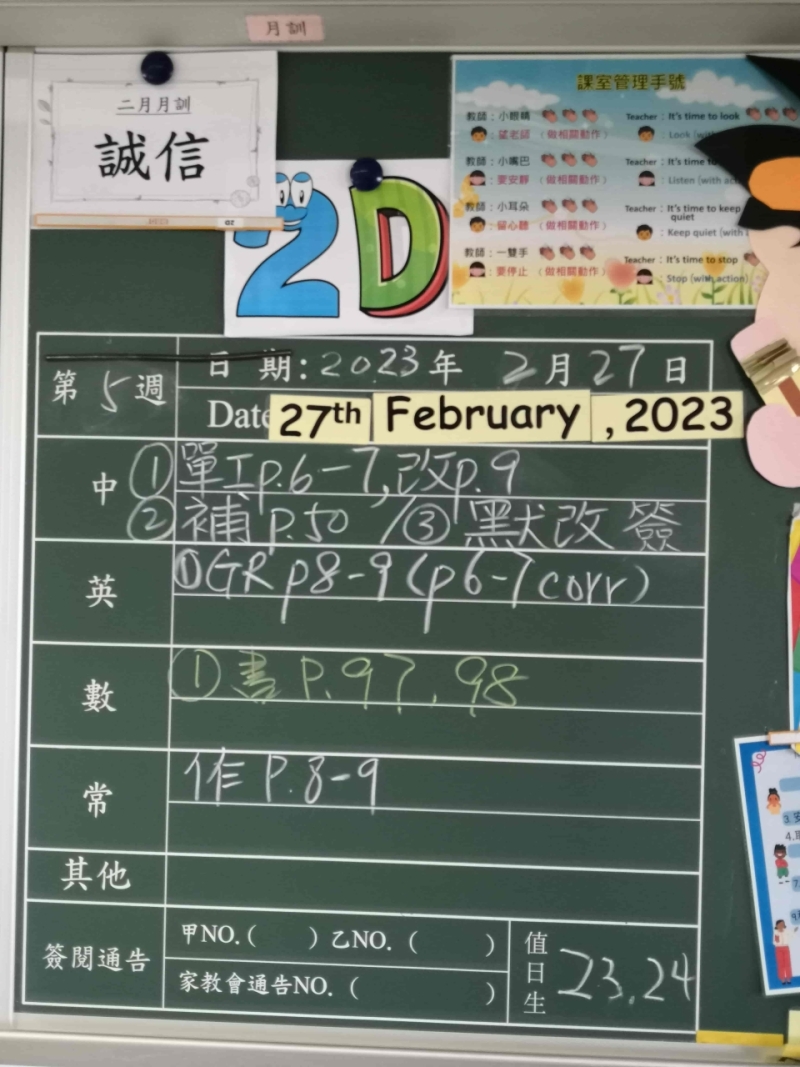 月訓
二月月訓
誠信
2D
課室管理手號
教師：小眼睛
：望老師 (做相關動作)
教師：小嘴巴
：要安靜 (做相關動作)
教師：小耳朵
：留心聽 (做相關動作)
教師：一雙手
：要停止 (做相關動作)
Teacher : It's time to look
: Look (with
Teacher : It's time to
: Listen (with act
Teacher : It's time to keep
quiet
: Keep quiet (with
Teacher : It's time to stop
: Stop (with action)
第5週
日 期: 2023年 2月27日
Date 27th February , 2023
中
①單工p.6-7,改p.9
②補p.50 /③默改 簽
英
①GR p8-9 (p6-7 corr)
數
①書 P.97, 98
常
作 P.8-9
其他
簽閱通告
甲NO.( ) 乙NO. ( )
家教會通告NO. ( )
值日生
23.24